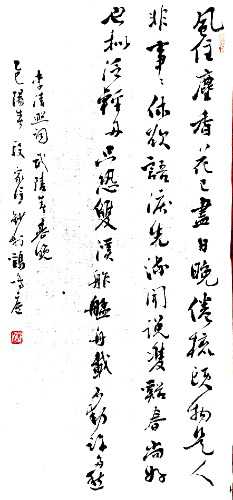 風住塵香花已盡日晚倦梳頭物是人
非事〻休欲語淚先流聞說雙谿春尚好
也拟泛輕舟只恐雙溪舴艋舟載不動許多愁
李清照詞武陵春春晚
乙巳陽春